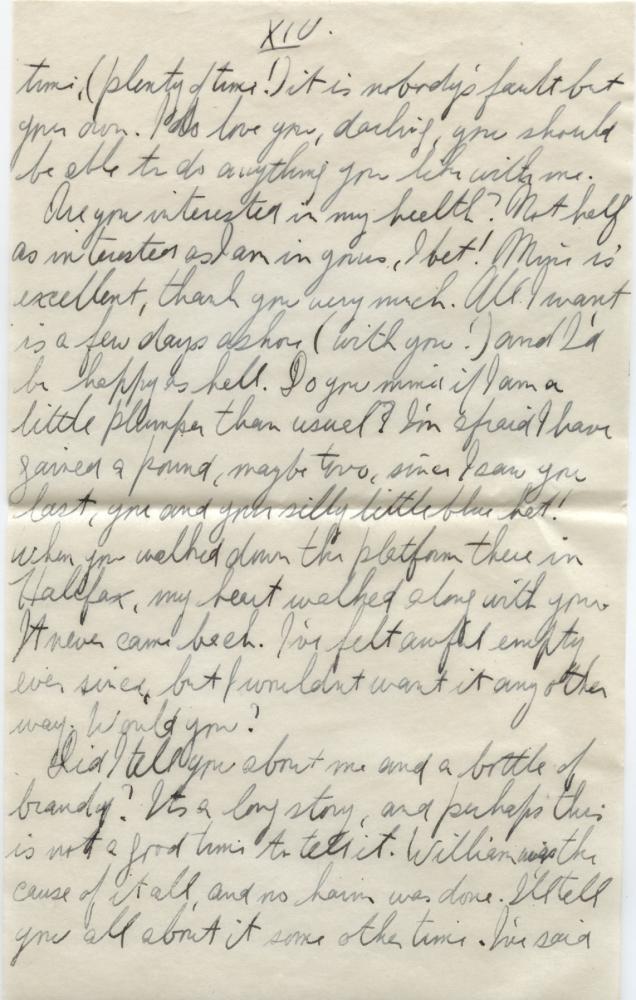 XIV.
time, (plenty of time!) it is nobody's fault but
your own. I do love you, darling, you should
be able to do anything you like with me.
Are you interested in my health? Not half
as interested as I am in yours, I bet! Mine is
excellent, thank you very much. All I want
is a few days ashore (with you!) and I'd
be happy as hell. Do you mind if I am a
little plumper than usual? I'm afraid I have
gained a pound, maybe two, since I saw you
last, you and your silly little blue hat!
When you walked down the platform there in
Halifax, my heart walked along with you.
It never came back. I've felt awful empty
ever since, but I wouldn't want it any other
way. Would you?
Did I tell you about me and a bottle of
brandy? It's a long story, and perhaps this
is not a good time to tell it. William was the
cause of it all, and no harm was done. I'll tell
you all about it some other time. I've said